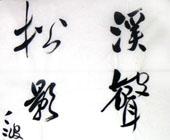 溪聲
松影